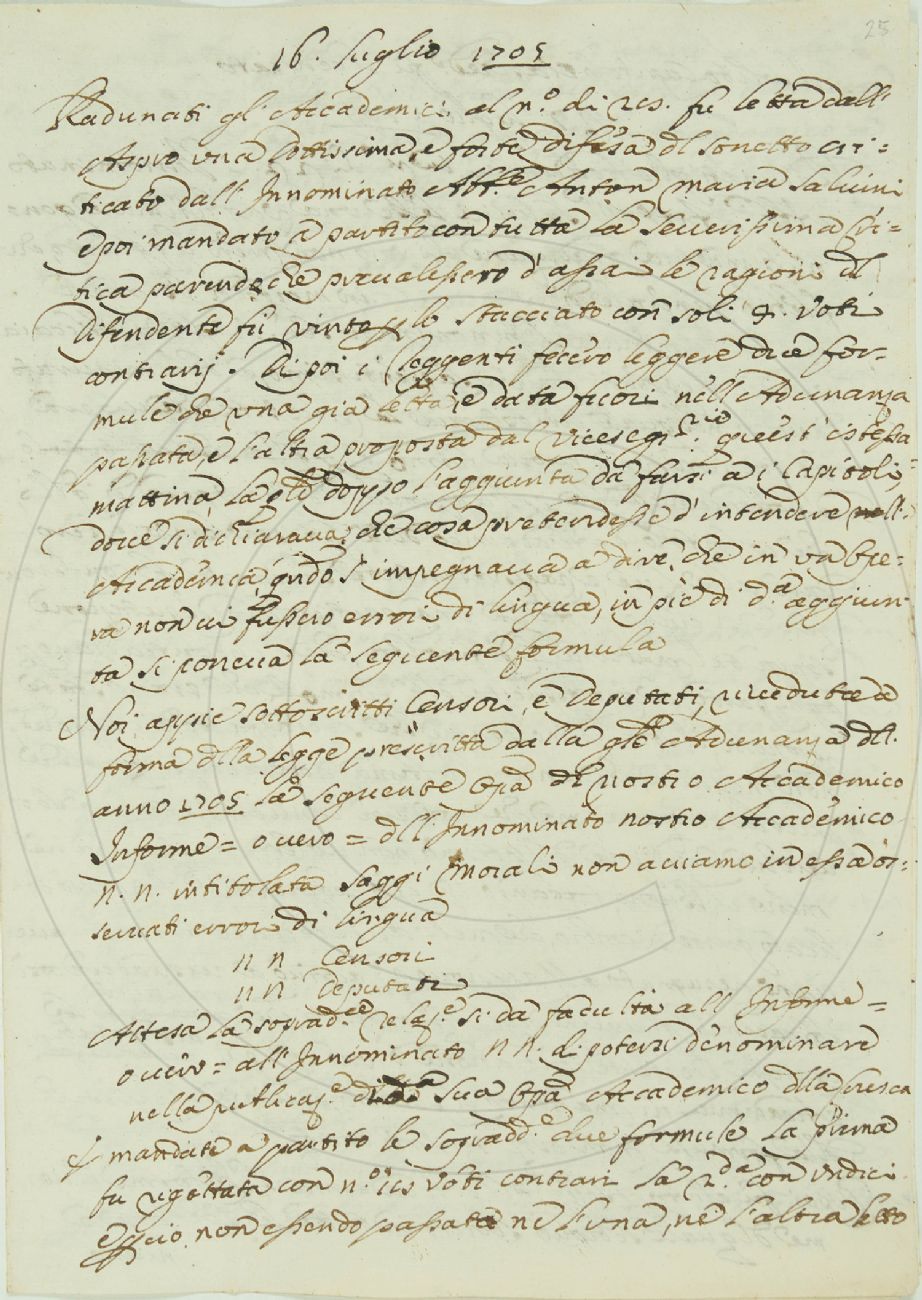 25
16. Luglio 1705
Radunati gl'Accademici al n.º di 25. fu letta dall'
Aspro una dottissima, e forte difesa dl sonetto cri=
ticato dall'Innominato Abb.e Anton Maria Salvini
e poi mandato a partito con tutta la severissima Cri=
tica parendo, che prevalessero d'assai le ragioni dl
difendente fu vinto p lo stacciato con soli 9. voti
contrarij. Di poi i Leggenti fecero leggere due for=
mule che una già letta, e data fuori nell'Adunanza
passata, e l'altra proposta dal Vicesegr.rio quest'istessa
mattina, la qle doppo l'aggiunta da farsi a i Capitoli,
dove si dichiarava, che cosa pretendesse d'intendere l'
Accademia, qndo s'impegnava a dire, che in un'ope=
ra non vi fussero errori di lingua, in piè di d.a aggiun
ta si poneva la seguente formula
Noi appiè sottoscritti Censori, e Deputati, riveduta a
forma dlla legge prescritta dalla gnle Adunanza dll'
anno 1705 la seguente opa dl nostro Accademico
Informe = overo = dll'Innominato nostro Accademico
N. N. intitolata Saggi Morali non aviamo in essa os=
servati errori di lingua
N N Censori
N N Deputati
Attesa la soprad.a relaz.e si da facultà all'Informe =
overo = all'Innominato N N. di potersi denominare
nella publicaz.e della sua opa Accademico dlla Crusca
E mandate a partito le sopradd.e due formule la prima
fu rigettata con n.º 15 voti contrari la 2.da con undici
e p ciò non essendo passata ne l'una, ne l'altra letto